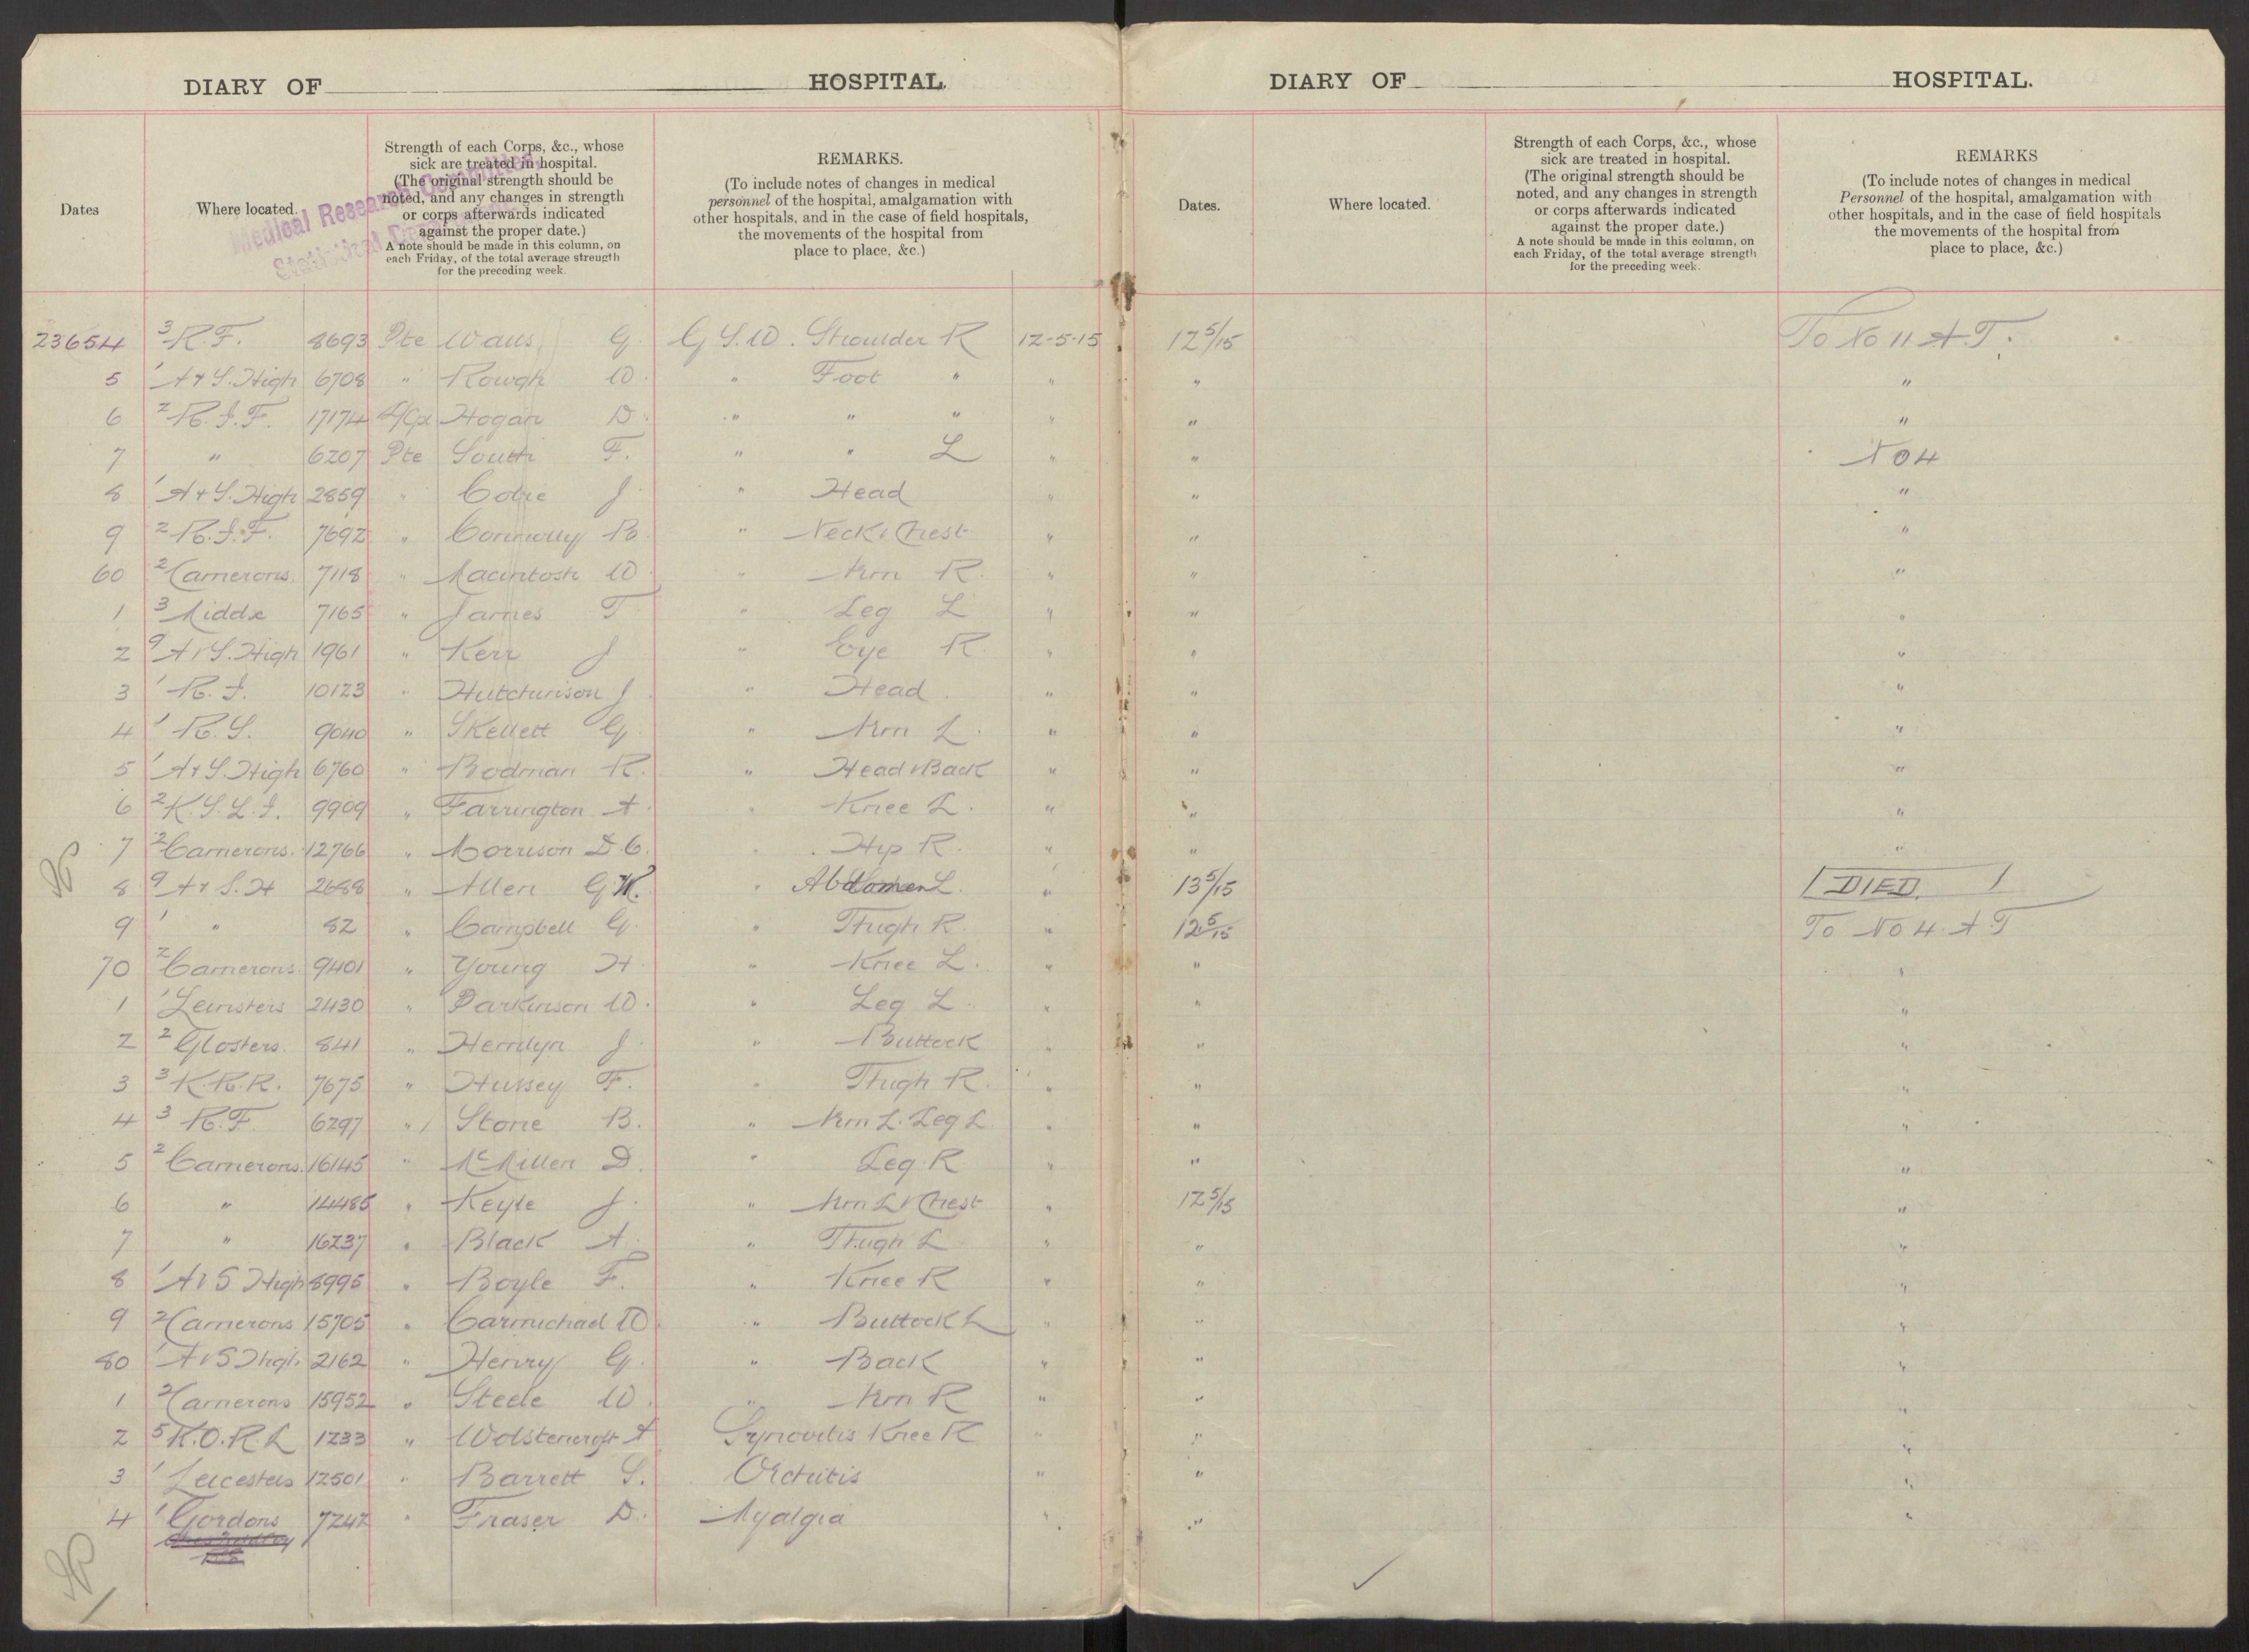 DIARY OF HOSPITAL.
Dates
Where located.
Medical Research Committee,
Statistical
Strength of each Corps, &c., whose
sick are treated in hospital.
(The original strength should be
noted, and any changes in strength
or corps afterwards indicated
against the proper date.)
A note should be made in this column, on
each Friday, of the total average strength
for the preceding week.
REMARKS.
(To include notes of changes in medical
personnel of the hospital, amalgamation with
other hospitals, and in the case of field hospitals,
the movements of the hospital from
place to place, &c.)
DIARY OF HOSPITAL.
Dates.
Where located.
Strength of each Corps, &c., whose
sick are treated in hospital.
(The original strength should be
noted, and any changes in strength
or corps afterwards indicated
against the proper date.)
A note should be made in this column, on
each Friday, of the total average strength
for the preceding week.
REMARKS
(To include notes of changes in medical
Personnel of the hospital, amalgamation with
other hospitals, and in the case of field hospitals
the movements of the hospital from
place to place, &c.)
23654 3 R.F. 8693 Pte Walls G. G.S.W. Shoulder R 12-5-15 12 5/15 To No 11 A.T.
5 1 A & S. High 6708 " Rough W. " Foot " " " "
6 2 R.I.F. 17174 L/Cpl Hogan D. " " " " " "
7 " 6207 Pte South F. " " L " " No 4
8 1 A & S. High 2859 " J " Head " " "
9 2 R.I.F. 7692 " Connolly B. " Neck & Chest " " "
60 2 Camerons 7118 " Macintosh W. " Arm R. " " "
1 3 Middx 7165 " James T " Leg L " " "
2 9 A & S. High 1961 " Kerr J " Eye R. " " "
3 1 R.I. 10123 " Hutchinson J " Head. " " "
4 1 R.S. 9040 " Skellett G " Arm L. " " "
5 1 A & S. High 6760 " Bodman R. " Head & Back " " "
6 2 K.S.L.I. 9909 " Farrington A. " Knee L. " " "
7 2 Camerons. 12766 " Morrison D.C. " Hip R. " " "
8 9 A & S. H 2688 " Allen G.K. " Abdomen L. " 13 5/15 DIED.
9 1 " 82 " Campbell G. " Thigh R. " 12 5/15 To No 4 A.T
70 2 Camerons. 9401 " Young H. " Knee L. " " "
1 1 Leinsters 2430 " Parkinson W. " Leg L " " "
2 2 Glosters. 841 " Hemlyn J. " Buttock " " "
3 3 K.R.R. 7675 " Hussey F. " Thigh R. " " "
4 3 R.F. 6297 " Stone B. " Arm L. Leg L " " "
5 2 Camerons. 16145 " McMillen D. " Leg R " " "
6 " 14485 " Keyte J. " Arm L & Chest " 12 5/15 "
7 " 16237 " Black A. " Thigh L " " "
8 1 A & S High 8995 " Boyle F. " Knee R " " "
9 2 Camerons 15705 " Carmichael W " Buttock L " " "
80 1 A & S High 2162 " Henry G. " Back " " "
1 2 Camerons 15952 " Steele W. " Arm R " " "
2 5 K.O.R.L 1233 " Wolstencroft A Synovitis Knee R " " "
3 1 Leicesters 12501 " Barrett S. Orchitis " " "
4 1 Gordons 7242 " Fraser D. Myalgia " " "